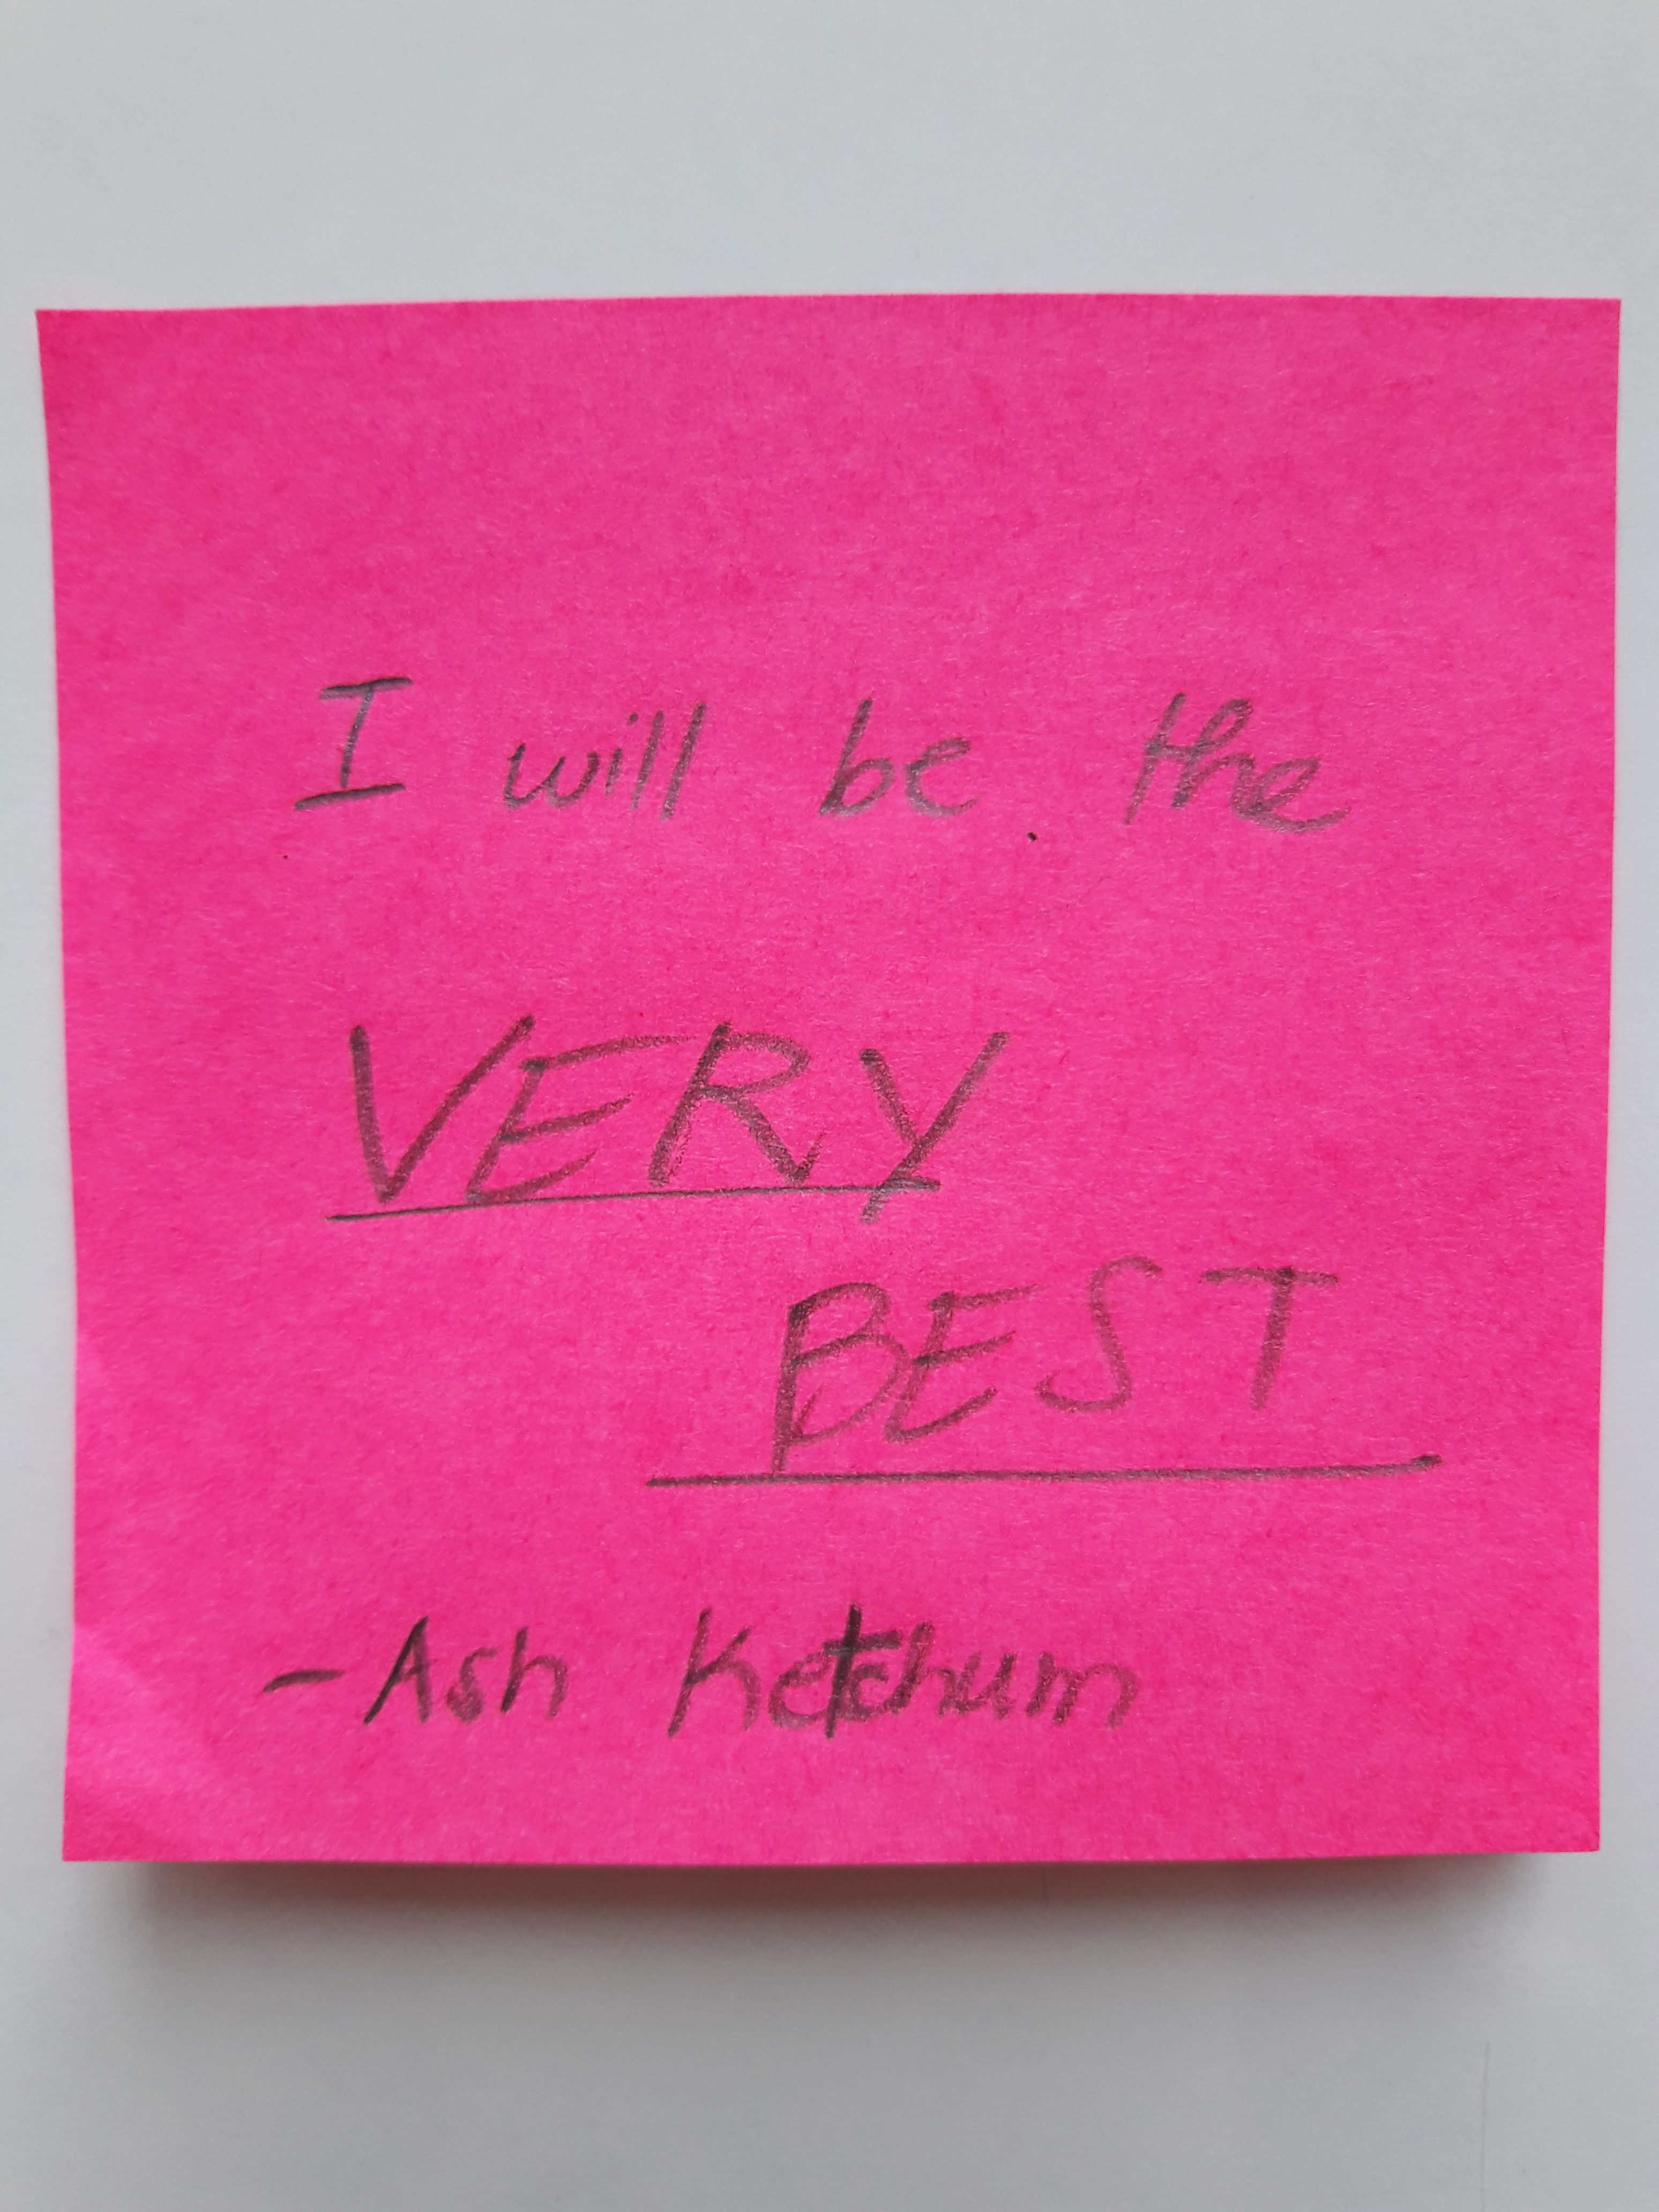 I will be the
VERY
BEST
-Ash Ketchum